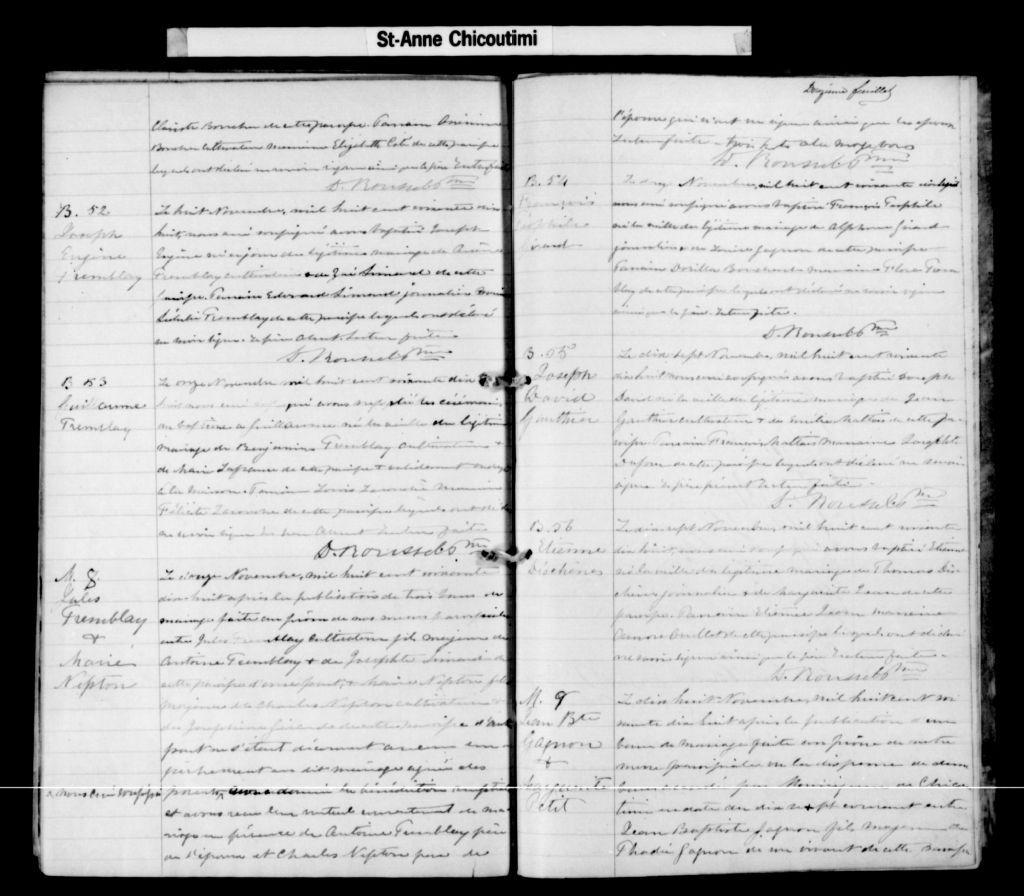 St-Anne Chicoutimi
de cette paroisse. Parrain
Boucher cultivateur marraine Elizabeth Côté de cette paroisse
lesquels ont déclaré ne savoir signer ainsi que le père. Lecture faite
D. Roussel Ptre
B. 52
Joseph
Eugène
Tremblay
Le huit Novembre, mil huit cent soixante dix
huit, nous curé soussigné avons baptisé Joseph
Eugène né ce jour du légitime mariage de
Tremblay cultivateur & de Zoé Simard de cette
paroisse. Parrain Edouard Simard journalier
Tremblay de cette paroisse lesquels ont déclaré
ne savoir signer. Le père absent. Lecture faite
D. Roussel Ptre
B 53
Guillaume
Tremblay
Le onze Novembre mil huit cent soixante dix
huit nous curé qui avons suppléé les cérémonies
du baptême à Guillaume né la veille du légitime
mariage de Benjamin Tremblay cultivateur &
de Marie Lafrance de cette paroisse & ondoyé
à la maison. Parrain Louis Larouche Marraine
Félicité Larouche de cette paroisse lesquels ont déclaré
ne savoir signer. Le père absent. Lecture faite
D. Roussel Ptre
M. 8.
Jules
Tremblay
&
Marie
Nepton
Le Novembre, mil huit cent soixante
dix huit après la publications de trois bans de
mariage faite au prône de nos messes paroissiales
entre Jules Tremblay cultivateur fils majeur de
Antoine Tremblay & de Josephte Simard de
cette paroisse d'une part, & Marie Nepton fille
mineure de Charles Nepton cultivateur &
de Josephine de cette paroisse d'autre
part ne s'étant découvert aucun em
pêchement au dit mariage
parents avons donné la bénédiction nuptiale
nous curé soussigné
et avons reçu leur mutuel consentement de ma
riage en présence de Antoine Tremblay père
de l'époux et Charles Nepton père de
Deuxième feuillet
l'épouse qui n'ont su signer ainsi que les époux
Lecture faite. trois mots nuls
D. Roussel Ptre
B. 54
François
Théophile
Girard
Le Novembre, mil huit cent soixante dix huit
nous curé soussigné avons baptisé François Théophile
né la veille du légitime mariage de Alphonse Girard
journalier & de Louise Gagnon de cette paroisse
Parrain marraine Flore Trem
blay de cette paroisse lesquels ont déclaré ne savoir signer
ainsi que le père. Lecture faite.
D. Roussel Ptre
B. 55
Joseph
David
Gauthier
Le dix sept Novembre, mil huit cent soixante
dix huit nous curé soussigné avons baptisé Joseph
David né la veille du légitime mariage de Jean
Gauthier cultivateur & de Emilie Maltais de cette pa
roisse Parrain François Maltais Marraine
Dufour de cette paroisse lesquels ont déclaré ne savoir
signer. Le père présent. Lecture faite.
D. Roussel Ptre
B. 56
Etienne
Dechênes
Le dix sept Novembre, mil huit cent soixante
dix huit, nous curé soussigné avons baptisé Etienne
né la veille du légitime mariage de Thomas Des
chênes journalier & de Marguerite Jean de cette
paroisse Parrain Etienne Jean marraine
Ouellet de cette paroisse lesquels ont déclaré
ne savoir signer ainsi que le père. Lecture faite.
D. Roussel Ptre
M. 9
Jean Bte
Gagnon
&
Marguerite
Petit
Le dix huit Novembre, mil huit cent soi
xante dix huit après la publication d'un
banc de mariage faite au prône de notre
messe paroissiale vu la dispense de deux
bans accordé par Monseigneur de Chicou
timi en date du dix sept courant entre
Jean Baptiste Gagnon fils majeur de
Thadé Gagnon de son vivant de cette paroisse